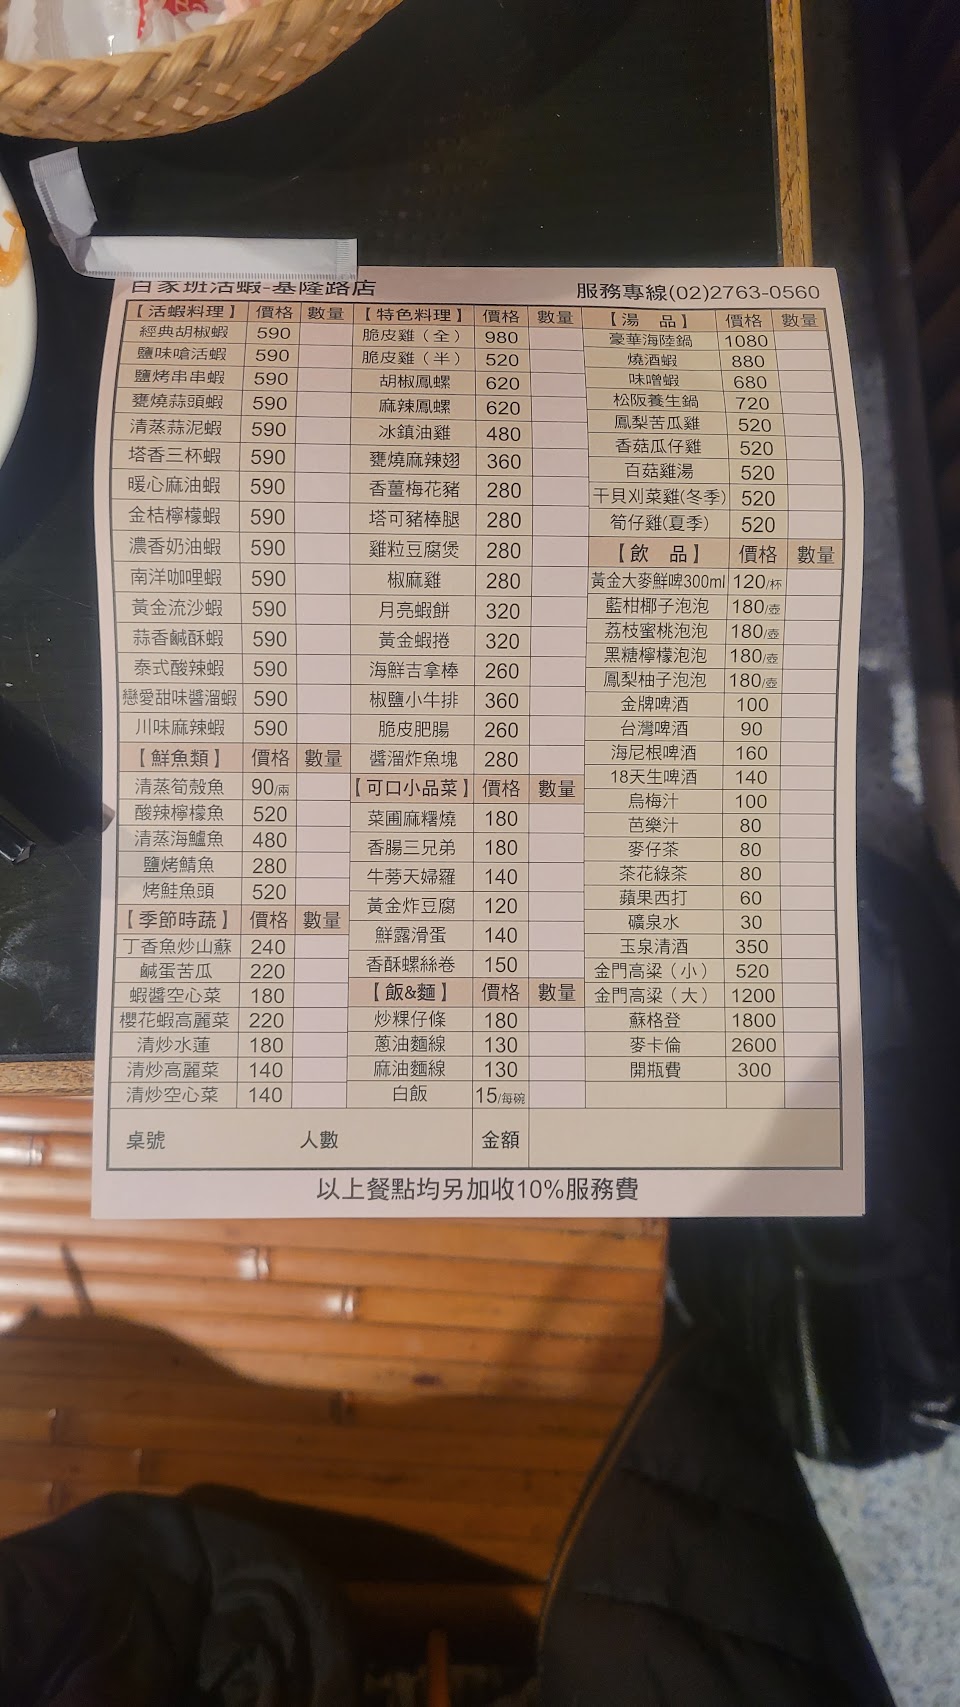 百家班活蝦-基隆路店
服務專線(02)2763-0560
【活蝦料理】 價格 數量
經典胡椒蝦 590
鹽味嗆活蝦 590
鹽烤串串蝦 590
甕燒蒜頭蝦 590
清蒸蒜泥蝦 590
塔香三杯蝦 590
暖心麻油蝦 590
金桔檸檬蝦 590
濃香奶油蝦 590
南洋咖哩蝦 590
黃金流沙蝦 590
蒜香鹹酥蝦 590
泰式酸辣蝦 590
戀愛甜味醬溜蝦 590
川味麻辣蝦 590
【鮮魚類】 價格 數量
清蒸筍殼魚 90/兩
酸辣檸檬魚 520
清蒸海鱸魚 480
鹽烤鯖魚 280
烤鮭魚頭 520
【季節時蔬】 價格 數量
丁香魚炒山蘇 240
鹹蛋苦瓜 220
蝦醬空心菜 180
櫻花蝦高麗菜 220
清炒水蓮 180
清炒高麗菜 140
清炒空心菜 140
【特色料理】 價格 數量
脆皮雞（全） 980
脆皮雞（半） 520
胡椒鳳螺 620
麻辣鳳螺 620
冰鎮油雞 480
甕燒麻辣翅 360
香薑梅花豬 280
塔可豬棒腿 280
雞粒豆腐煲 280
椒麻雞 280
月亮蝦餅 320
黃金蝦捲 320
海鮮吉拿棒 260
椒鹽小牛排 360
脆皮肥腸 260
醬溜炸魚塊 280
【可口小品菜】 價格 數量
菜圃麻糬燒 180
香腸三兄弟 180
牛蒡天婦羅 140
黃金炸豆腐 120
鮮露滑蛋 140
香酥螺絲卷 150
【飯&麵】 價格 數量
炒粿仔條 180
蔥油麵線 130
麻油麵線 130
白飯 15/每碗
【湯 品】 價格 數量
豪華海陸鍋 1080
燒酒蝦 880
味噌蝦 680
松阪養生鍋 720
鳳梨苦瓜雞 520
香菇瓜仔雞 520
百菇雞湯 520
干貝刈菜雞(冬季) 520
筍仔雞(夏季) 520
【飲 品】 價格 數量
黃金大麥鮮啤300ml 120/杯
藍柑椰子泡泡 180/壺
荔枝蜜桃泡泡 180/壺
黑糖檸檬泡泡 180/壺
鳳梨柚子泡泡 180/壺
金牌啤酒 100
台灣啤酒 90
海尼根啤酒 160
18天生啤酒 140
烏梅汁 100
芭樂汁 80
麥仔茶 80
茶花綠茶 80
蘋果西打 60
礦泉水 30
玉泉清酒 350
金門高粱（小） 520
金門高粱（大） 1200
蘇格登 1800
麥卡倫 2600
開瓶費 300
桌號 人數 金額
以上餐點均另加收10%服務費